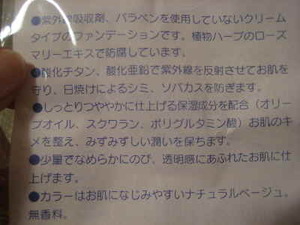 ●紫外線吸収剤、パラベンを使用していないクリーム
タイプのファンデーションです。植物ハーブのローズ
マリーエキスで防腐しています。
●酸化チタン、酸化亜鉛で紫外線を反射させてお肌を
守り、日焼けによるシミ、ソバカスを防ぎます。
●しっとりつややかに仕上げる保湿成分を配合（オリー
ブオイル、スクワラン、ポリグルタミン酸）お肌のキ
メを整え、みずみずしい潤いを保ちます。
●少量でなめらかにのび、透明感にあふれたお肌に仕
上げます。
●カラーはお肌になじみやすいナチュラルベージュ。
無香料。